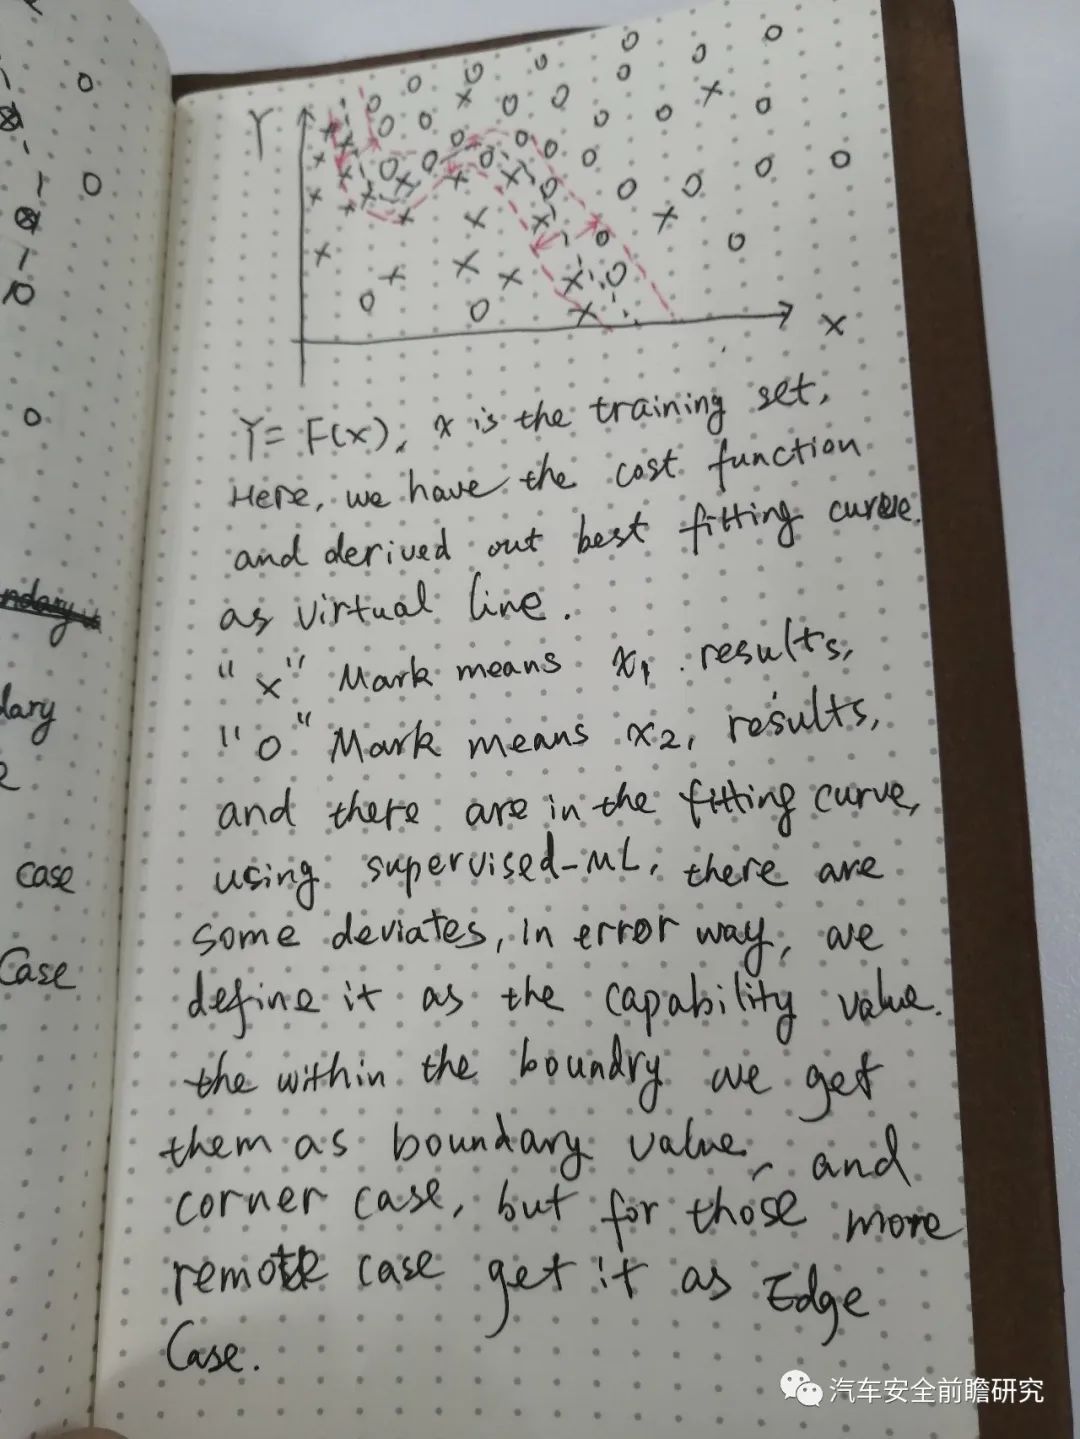 ndary
dary
case
Case
Y
x
Y = F(x), x is the training set,
Here, we have the cost function
and derived out best fitting curve.
as virtual line.
"x" Mark means x1 results,
"o" Mark means x2, results,
and there are in the fitting curve,
using supervised-ML, there are
some deviates, in error way, we
define it as the capability value.
the within the boundry we get
them as boundary value, and
corner case, but for those more
remote case get it as Edge
Case.
汽车安全前瞻研究